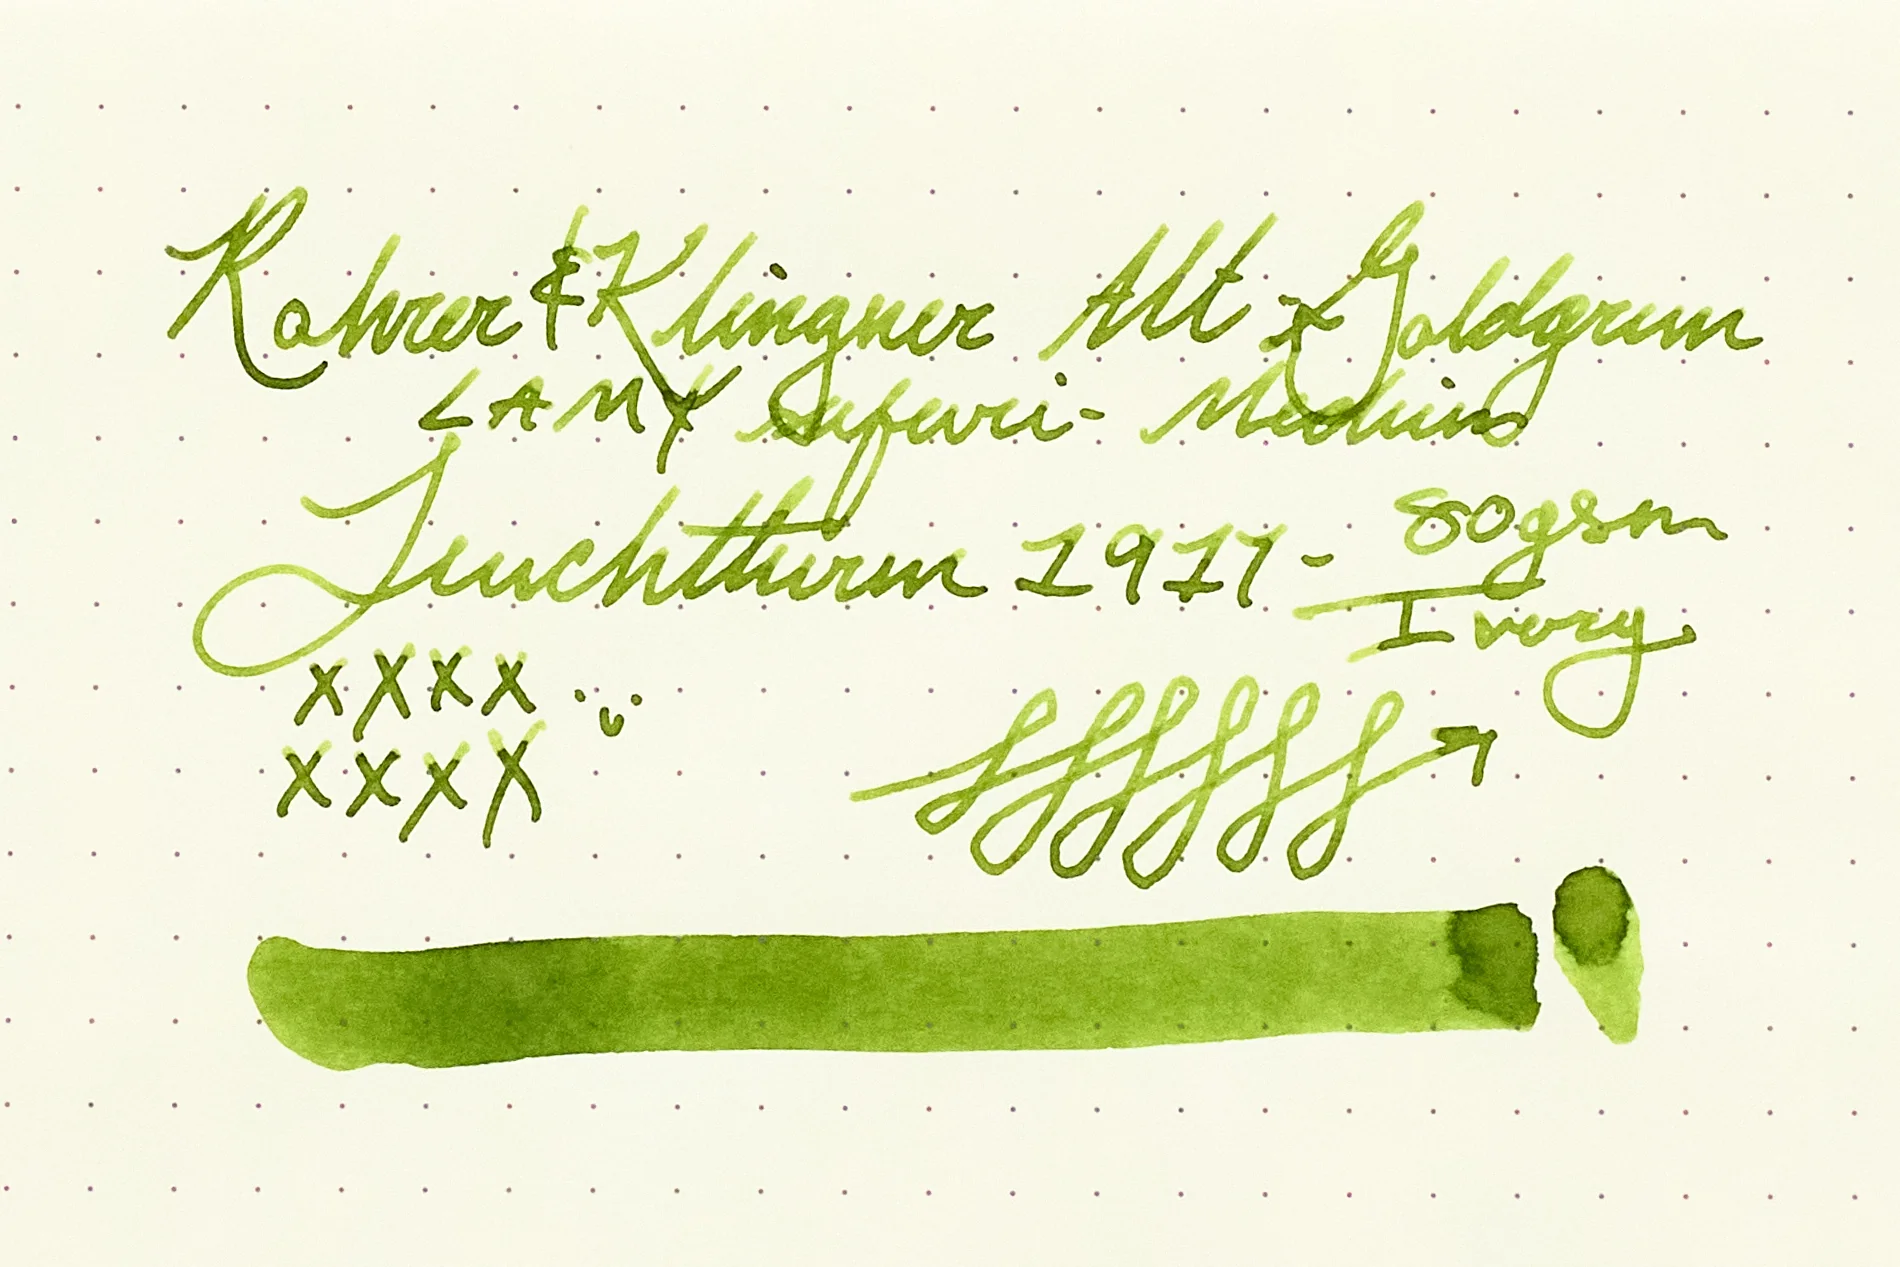 Rohrer & Klingner Alt-Goldgrün
LAMY Safari - Medium
Leuchtturm 1917 - 80gsm
Ivory
xxxx
xxxx